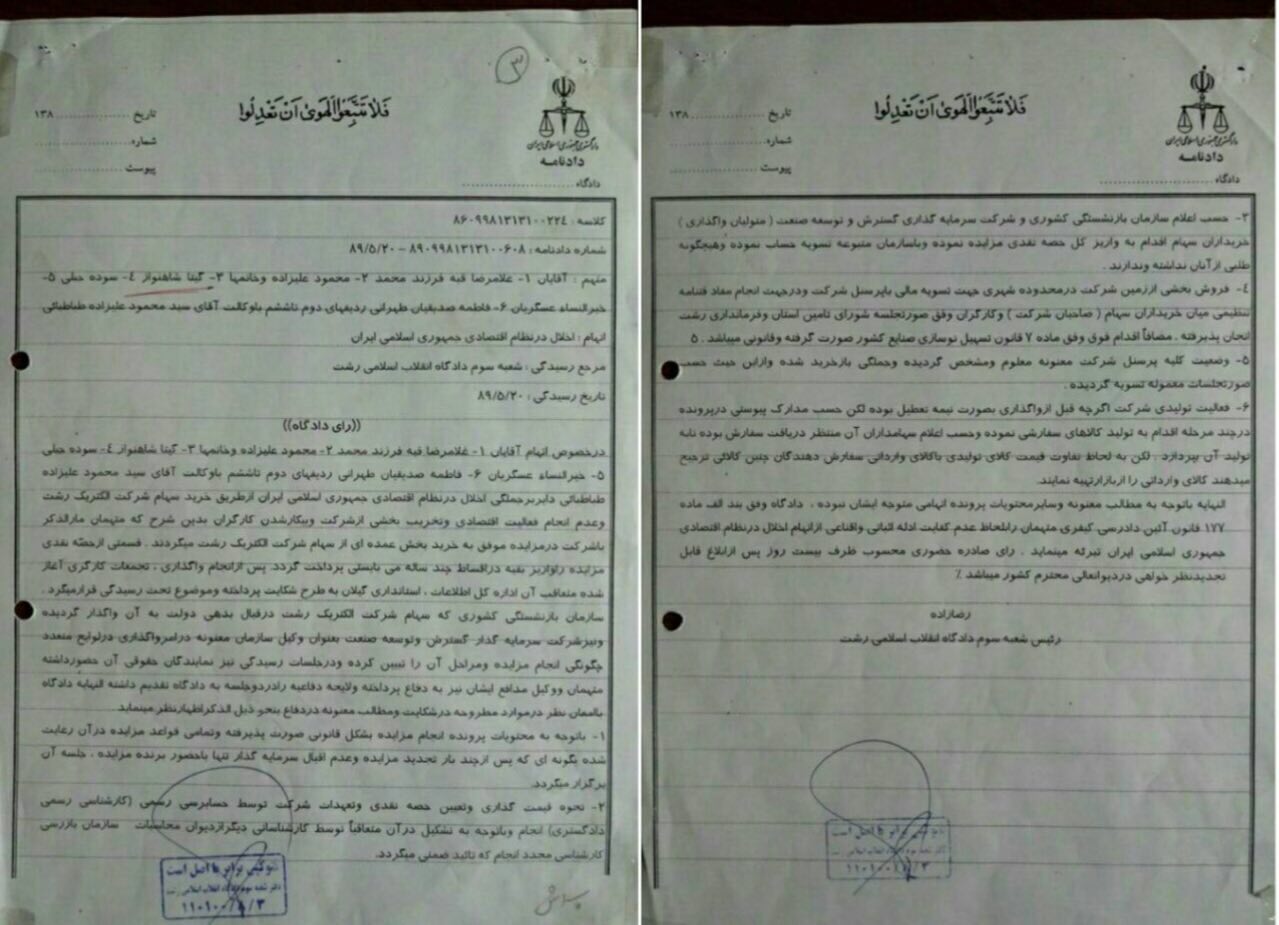 ۳
فلا تتبعوا الهوی ان تعدلوا
تاریخ .............. ۱۳۸
شماره ..............
پیوست ..............
دادگستری جمهوری اسلامی ایران
دادنامه
دادگاه ..............
کلاسه : ۸۶۰۹۹۸۱۳۱۳۱۰۰۲۲٤
شماره دادنامه : ۸۹۰۹۹۸۱۳۱۳۱۰۰۶۰۸ – ۸۹/۵/۲۰
متهم : آقایان ۱- غلامرضا قبه فرزند محمد ۲- محمود علیزاده وخانمها ۳- گیتا شاهنواز ٤- سوده جبلی ۵-
خیرالنساء عسگریان ۶- فاطمه صدیقیان طهرانی ردیفهای دوم تاششم باوکالت آقای سید محمود علیزاده طباطبائی
اتهام : اخلال درنظام اقتصادی جمهوری اسلامی ایران
مرجع رسیدگی : شعبه سوم دادگاه انقلاب اسلامی رشت
تاریخ رسیدگی : ۸۹/۵/۲۰
((رای دادگاه))
درخصوص اتهام آقایان ۱- غلامرضا قبه فرزند محمد ۲- محمود علیزاده وخانمها ۳- گیتا شاهنواز ٤- سوده جبلی
۵- خیرالنساء عسگریان ۶- فاطمه صدیقیان طهرانی ردیفهای دوم تاششم باوکالت آقای سید محمود علیزاده
طباطبائی دایربرجملگی اخلال درنظام اقتصادی جمهوری اسلامی ایران ازطریق خرید سهام شرکت الکتریک رشت
وعدم انجام فعالیت اقتصادی وتخریب بخشی ازشرکت وبیکارشدن کارگران بدین شرح که متهمان مارالذکر
باشرکت درمزایده موفق به خرید بخش عمده ای از سهام شرکت الکتریک رشت میگردند . قسمتی ازحصه نقدی
مزایده راواریز بقیه دراقساط چند ساله می بایستی پرداخت گردد. پس ازانجام واگذاری ، تجمعات کارگری آغاز
شده متعاقب آن اداره کل اطلاعات ، استانداری گیلان به طرح شکایت پرداخته وموضوع تحت رسیدگی قرارمیگرد .
سازمان بازنشستگی کشوری که سهام شرکت الکتریک رشت درقبال بدهی دولت به آن واگذار گردیده
ونیزشرکت سرمایه گذار گسترش وتوسعه صنعت بعنوان وکیل سازمان معنونه درامرواگذاری درلوایح متعدد
چگونگی انجام مزایده ومراحل آن را تبیین کرده ودرجلسات رسیدگی نیز نمایندگان حقوقی آن حضورداشته
متهمان ووکیل مدافع ایشان نیز به دفاع پرداخته ولایحه دفاعیه رادردوجلسه به دادگاه تقدیم داشته النهایه دادگاه
باامعان نظر درموارد مطروحه درشکایت ومطالب معنونه دردفاع بنحو ذیل الذکراظهارنظر مینماید
۱- باتوجه به محتویات پرونده انجام مزایده بشکل قانونی صورت پذیرفته وتمامی قواعد مزایده درآن رعایت
شده بگونه ای که پس ازچند بار تجدید مزایده وعدم اقبال سرمایه گذار تنها باحضور برنده مزایده ، جلسه آن
برگزار میگردد.
۲- نحوه قیمت گذاری وتعیین حصه نقدی وتعهدات شرکت توسط حسابرسی رسمی (کارشناسی رسمی
دادگستری) انجام وباتوجه به تشکیل درآن متعاقباً توسط کارشناسانی دیگرازدیوان محاسبات سازمان بازرسی
کارشناسی مجدد انجام که تائید ضمنی میگردد.
فتوکپی برابر با اصل است
دفتر شعبه سوم دادگاه انقلاب اسلامی رشت
۱۱۰۱۰۰/۸/۳
فلا تتبعوا الهوی ان تعدلوا
تاریخ .............. ۱۳۸
شماره ..............
پیوست ..............
دادگستری جمهوری اسلامی ایران
دادنامه
دادگاه ..............
۳- حسب اعلام سازمان بازنشستگی کشوری و شرکت سرمایه گذاری گسترش و توسعه صنعت ( متولیان واگذاری )
خریداران سهام اقدام به واریز کل حصه نقدی مزایده نموده وباسازمان متبوعه تسویه حساب نموده وهیچگونه
طلبی ازآنان نداشته وندارند .
٤- فروش بخشی اززمین شرکت درمحدوده شهری جهت تسویه مالی باپرسنل شرکت ودرجهت انجام مفاد قتنامه
تنظیمی میان خریداران سهام ( صاحبان شرکت ) وکارگران وفق صورتجلسه شورای تامین استان وفرمانداری رشت
انجان پذیرفته . مضافاً اقدام فوق وفق ماده ۷ قانون تسهیل نوسازی صنایع کشور صورت گرفته وقانونی میباشد . ۵
۵- وضعیت کلیه پرسنل شرکت معنونه معلوم ومشخص گردیده وجملگی بازخرید شده وازاین حیث حسب
صورتجلسات معموله تسویه گردیده .
۶- فعالیت تولیدی شرکت اگرچه قبل ازواگذاری بصورت نیمه تعطیل بوده لکن حسب مدارک پیوستی درپرونده
درچند مرحله اقدام به تولید کالاهای سفارشی نموده وحسب اعلام سهامداران آن منتظر دریافت سفارش بوده تابه
تولید آن بپردازد . لکن به لحاظ تفاوت قیمت کالای تولیدی باکالای وارداتی سفارش دهندگان چنین کالائی ترجیح
میدهند کالای وارداتی را ازبازارتهیه نمایند.
النهایه باتوجه به مطالب معنونه وسایرمحتویات پرونده اتهامی متوجه ایشان نبوده ، دادگاه وفق بند الف ماده
۱۷۷ قانون آئین دادرسی کیفری متهمان رابلحاظ عدم کفایت ادله اثباتی واقناعی ازاتهام اخلال درنظام اقتصادی
جمهوری اسلامی ایران تبرئه مینماید . رای صادره حضوری محسوب ظرف بیست روز پس ازابلاغ قابل
تجدیدنظر خواهی دردیوانعالی محترم کشور میباشد ٪
رضازاده
رئیس شعبه سوم دادگاه انقلاب اسلامی رشت
فتوکپی برابر با اصل است
دفتر شعبه سوم دادگاه انقلاب اسلامی رشت
۱۱۰۱۰۰/۸/۳